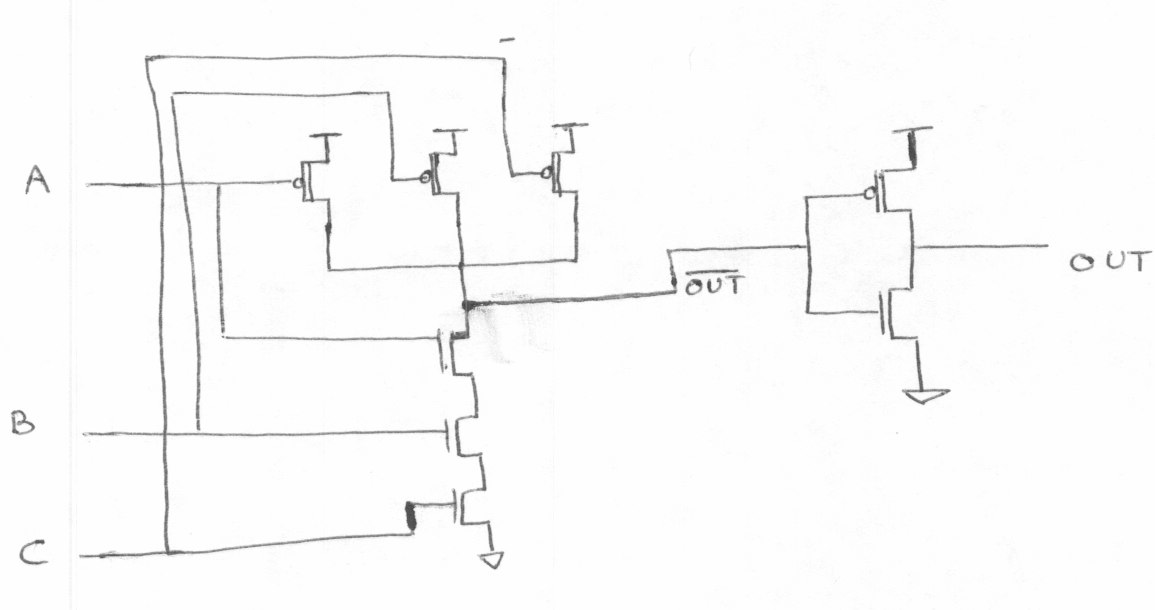 A
B
C
O̅U̅T̅
OUT